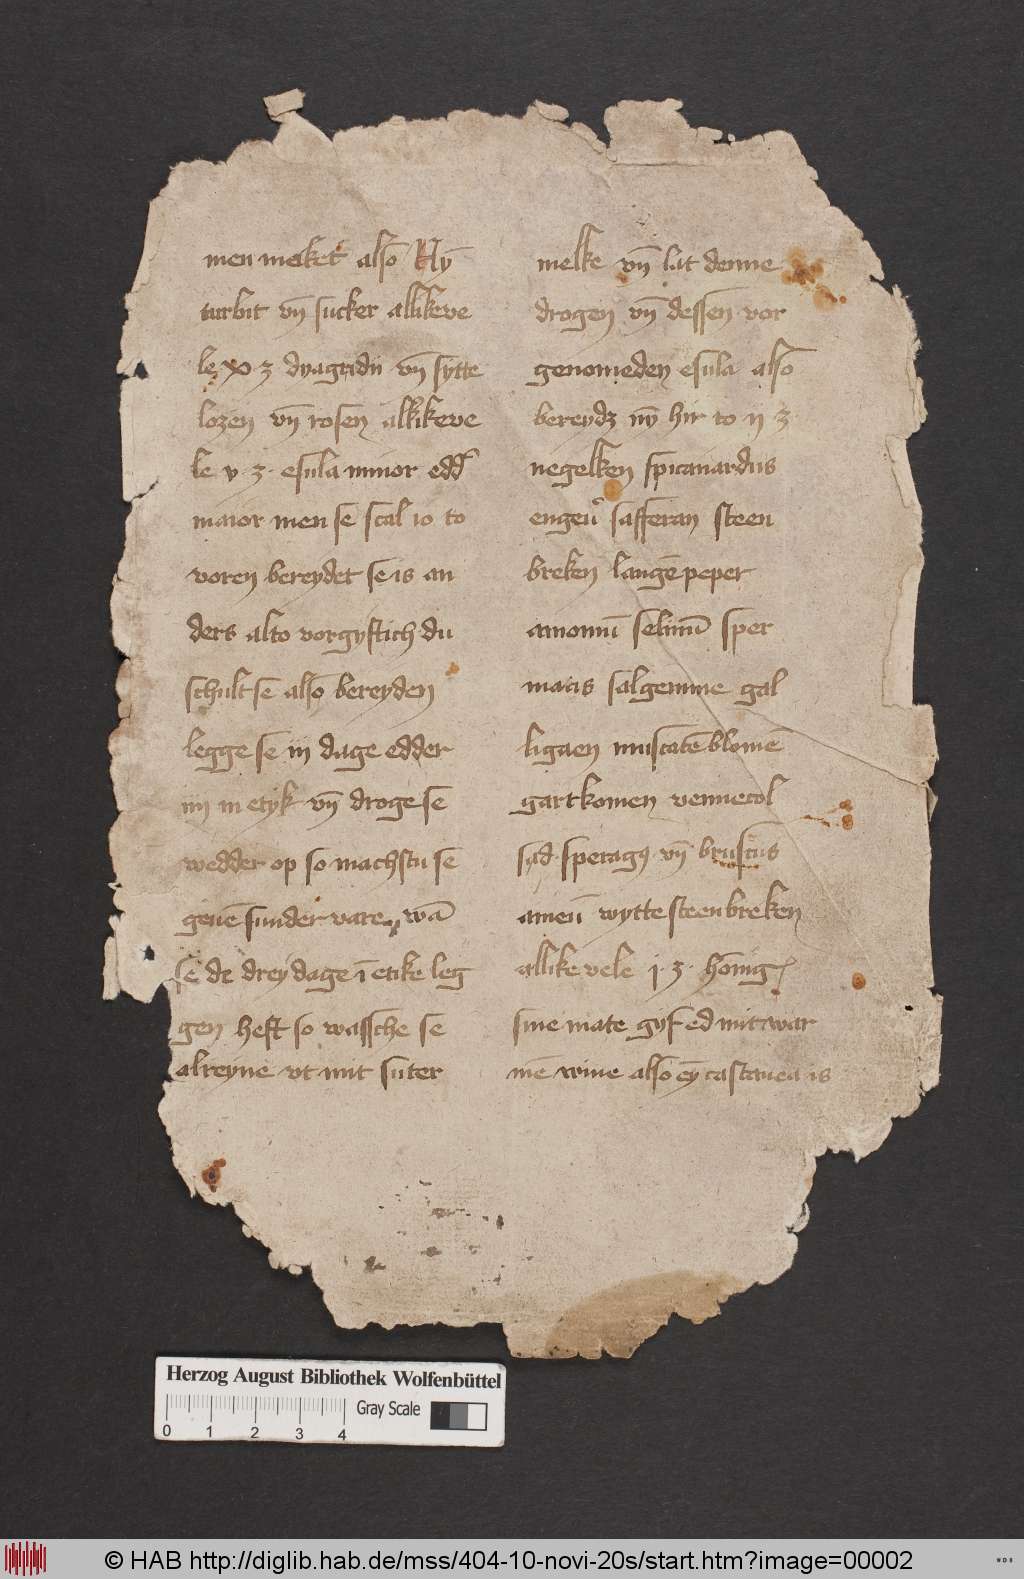 men meket also Ny̅
turbit vn̅ sucker allikeve
le x ʒ dyagridii vn̅ sytte
lozen vn̅ rosen allikeve
le v ʒ esula minor edd᷑
maior men se scal io to
voren bereydet se is an
ders alto vorgyftich du
schult se also bereyden
legge se iij dage edder
iiij in etyk vn̅ droge se
wedder op so machstu se
geue̅ sunder vare wa̅
se de drey dage i̅ etike leg
gen heft so wassche se
alreyne vt mit suter
melke vn̅ lat denne
drogen vn̅ dessen vor
genomeden esula also
bereydʒ ny̅ hir to ij ʒ
negelken spicanardus
engeu᷑ safferan steen
breken lange̅ peper
amomu̅ selimu̅ sper
macis salgemme gal
ligaen muscate̅ blome̅
gartkomen vennecol
sad speragꝰ vn̅ bruscus
ameu̅ wytte steenbreken
allike vele j ʒ honig
sine mate gyf ed mit war
me̅ wine also ey̅ castanea is
Herzog August Bibliothek Wolfenbüttel
Gray Scale
0 1 2 3 4
© HAB http://diglib.hab.de/mss/404-10-novi-20s/start.htm?image=00002